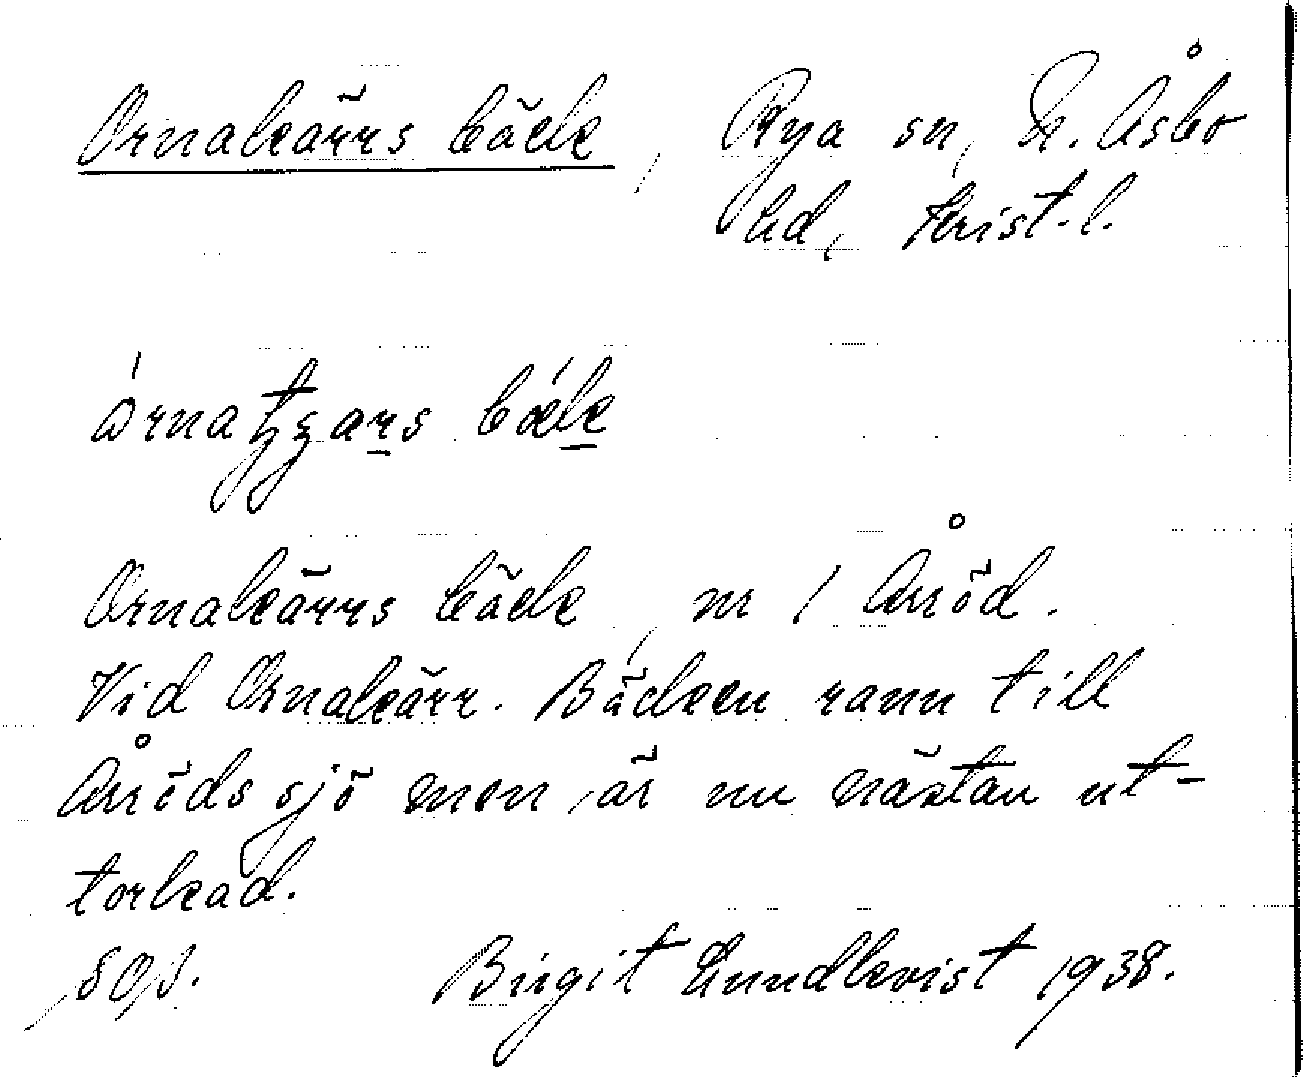 Ornakärrs bäck, Rya sn, N. Åsbo
hd, Krist. l.
Ornakärrs bäck, nr 1 Anöd.
Vid Ornakärr. Bäcken rann till
sjö men är nu nästan ut-
torkad.
Birgit Lundkvist 1938.